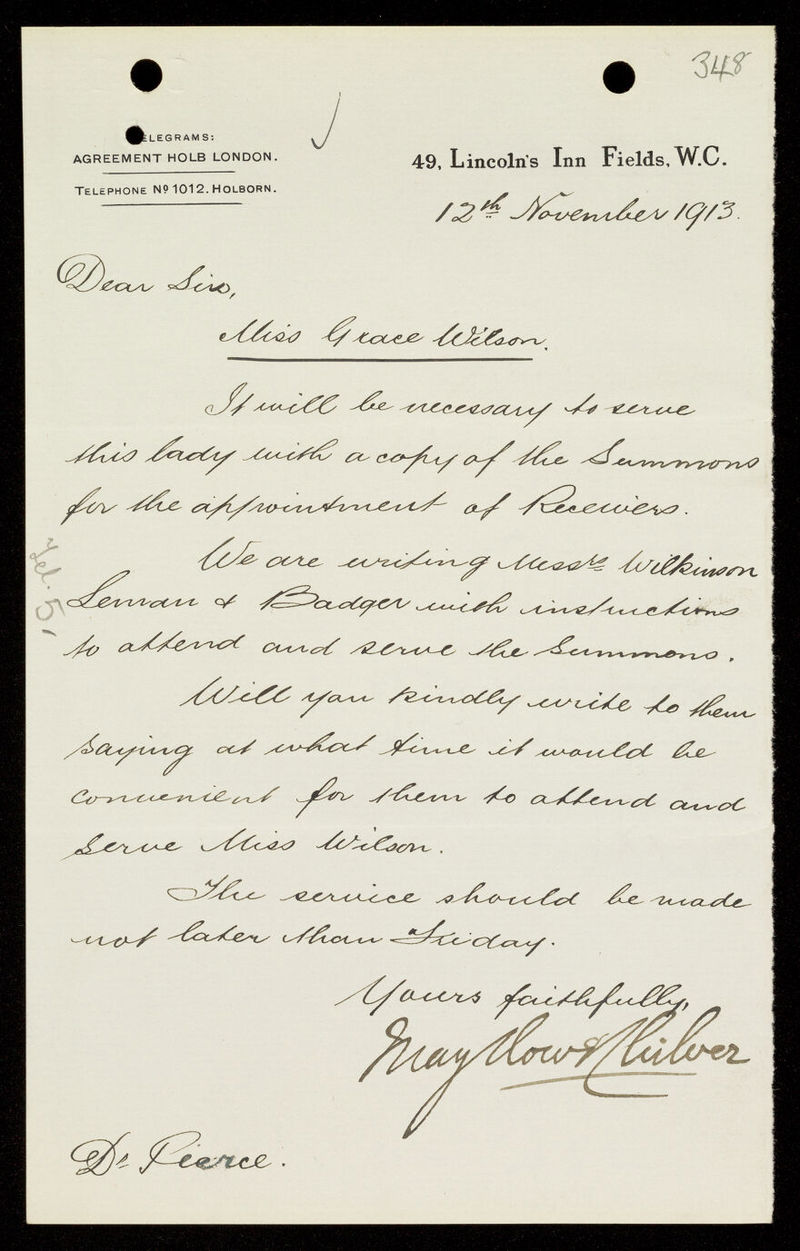 348
TELEGRAMS:
AGREEMENT HOLB LONDON.
TELEPHONE Nº 1012. HOLBORN.
49, Lincoln's Inn Fields, W.C.
12th November 1913.
Dear Sir,
Miss Grace Wilson.
It will be necessary to serve
this lady with a copy of the Summons
for the appointment of Receivers.
We are writing Messrs Wilkinson
Leman & Badger with instructions
to attend and serve the Summons.
Will you kindly write to them
saying at what time it would be
convenient for them to attend and
serve Miss Wilson.
The service should be made
not later than Friday.
Yours faithfully,
May How & Chilver
Dr Pierce.